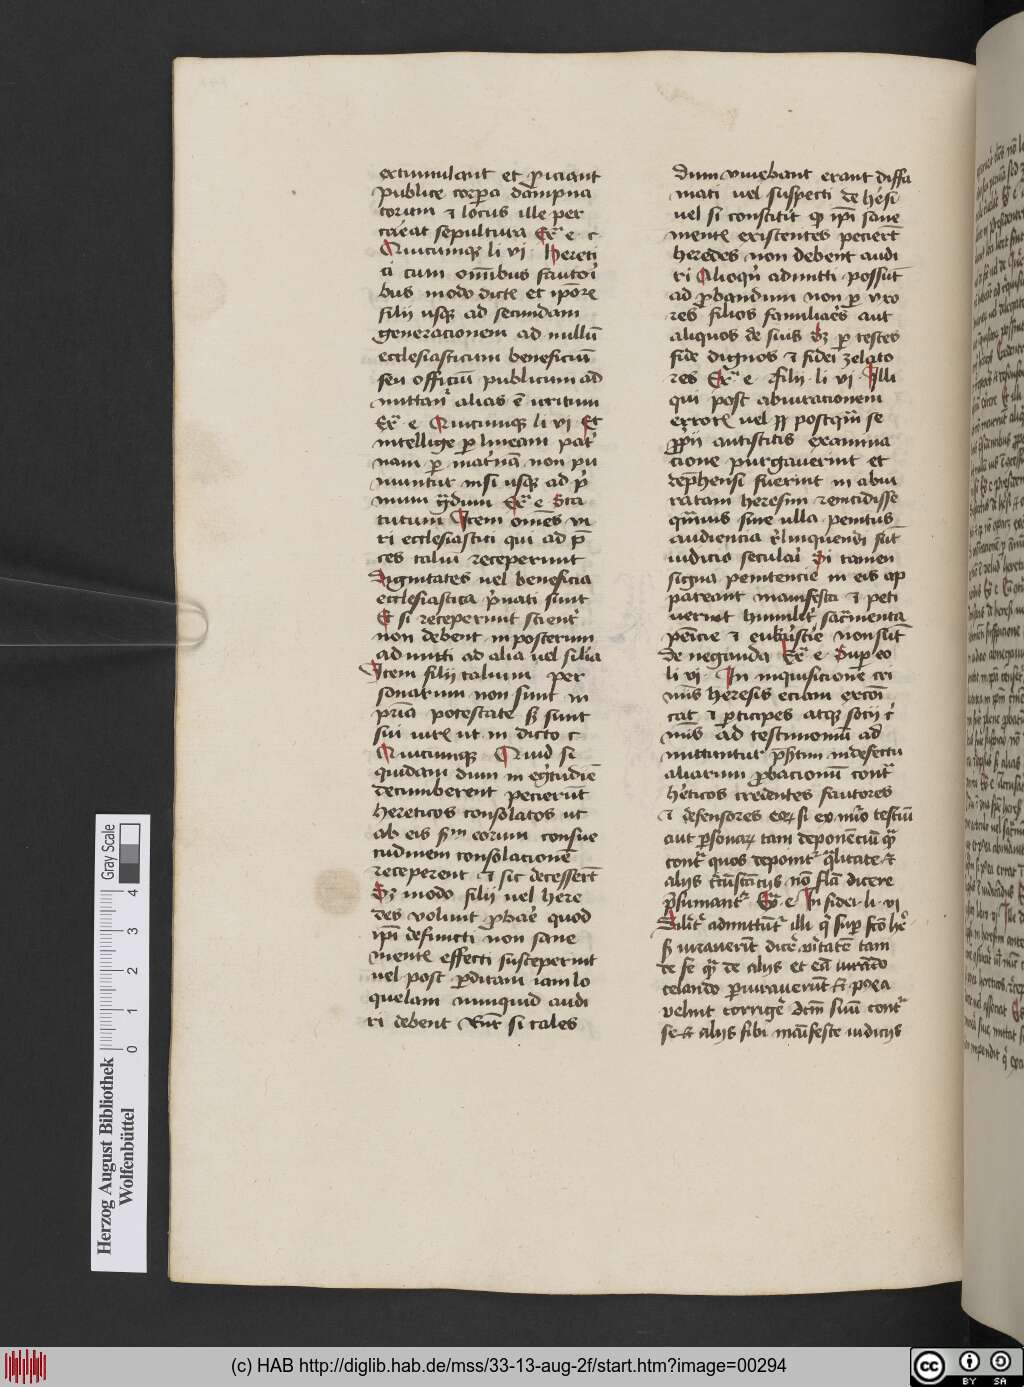 extumulant et proiciant
publice corpora dampna
torum et locus ille per
careat sepultura Ex e c
Quicumque li vi Hereti
ci cum omnibus fautori
bus modo dicte et ipore
filii usque ad secundam
generacionem ad nullu
ecclesiasticum beneficiu
seu officiu publicum ad
mittantr alias e irritum
Ex e Quicumque li vi Et
intellige per lineam pat
nam per matnam non pu
niuntur nisi usque ad pri
mum gradum Ex e Sta
tutum Item omnes vi
ri ecclesiastici qui ad p
ces taliu receperunt
Dignitates uel beneficia
ecclesiastica privati sunt
Et si receperunt scient
non debent in posterum
admitti ad alia uel silia
Item filii talium per
sonarum non sunt in
pria potestate sed sunt
sui iuris ut in dicto c
Quicumque Quid si
quidam dum in egritudie
decumberent pecierut
hereticos consolatos ut
ab eis sm eorum consue
tudinem consolacione
receperent et sic decessert
Et modo filii uel here
des volunt probare quod
ipi defuncti non sane
mentis effecti susceperunt
uel post perditam iam lo
quelam nunquid audi
ri debent Runt si tales
dum vivebant erant diffa
mati uel suspecti de hesi
uel si constitit quod ipi sane
mentis existentes peciert
heredes non debent audi
ri Alioqui admitti possut
ad probandum non per vxo
res filios familiares aut
aliquos de suis sed per testes
fide dignos et fidei zelato
res Ex e filii li vi Illi
qui post abiuracionem
erroris uel postqua se
proprii antistitis examina
cione purgauerint et
deprehensi fuerint in abiu
ratam heresim recidisse
quamuis sine ulla penitus
audiencia relinquendi sut
iudicio seculari Si tamen
signa penitencie in eis ap
pareant manifesta et peti
uerint humiliter sacramenta
penicie et eukaristie non sut
de neganda Ex e Super eo
li vi In inquisicione cri
minis heresis eciam excoi
cati et participes atque socii cri
minis ad testimoniu ad
mittuntur presertim in defectu
aliarum probacionu contra
hereticos credentes fautores
et defensores eorum si ex numero testiu
aut personarum tam deponenciu quam
contra quos deponitur qualitate et
aliis circumstanciis non falsa dicere
presumantur Ex e In fidei li vi
Similiter admittuntur illi qui super scto her
si iurauerint dicere veritatem tam
de se quam de aliis et eam iurando
celando periurauerunt si postea
velint corrigere dictum suum contra
se et aliis sibi manifeste iudiciis
Gray Scale
0 1 2 3 4
Herzog August Bibliothek
Wolfenbüttel
(c) HAB http://diglib.hab.de/mss/33-13-aug-2f/start.htm?image=00294
cc BY SA